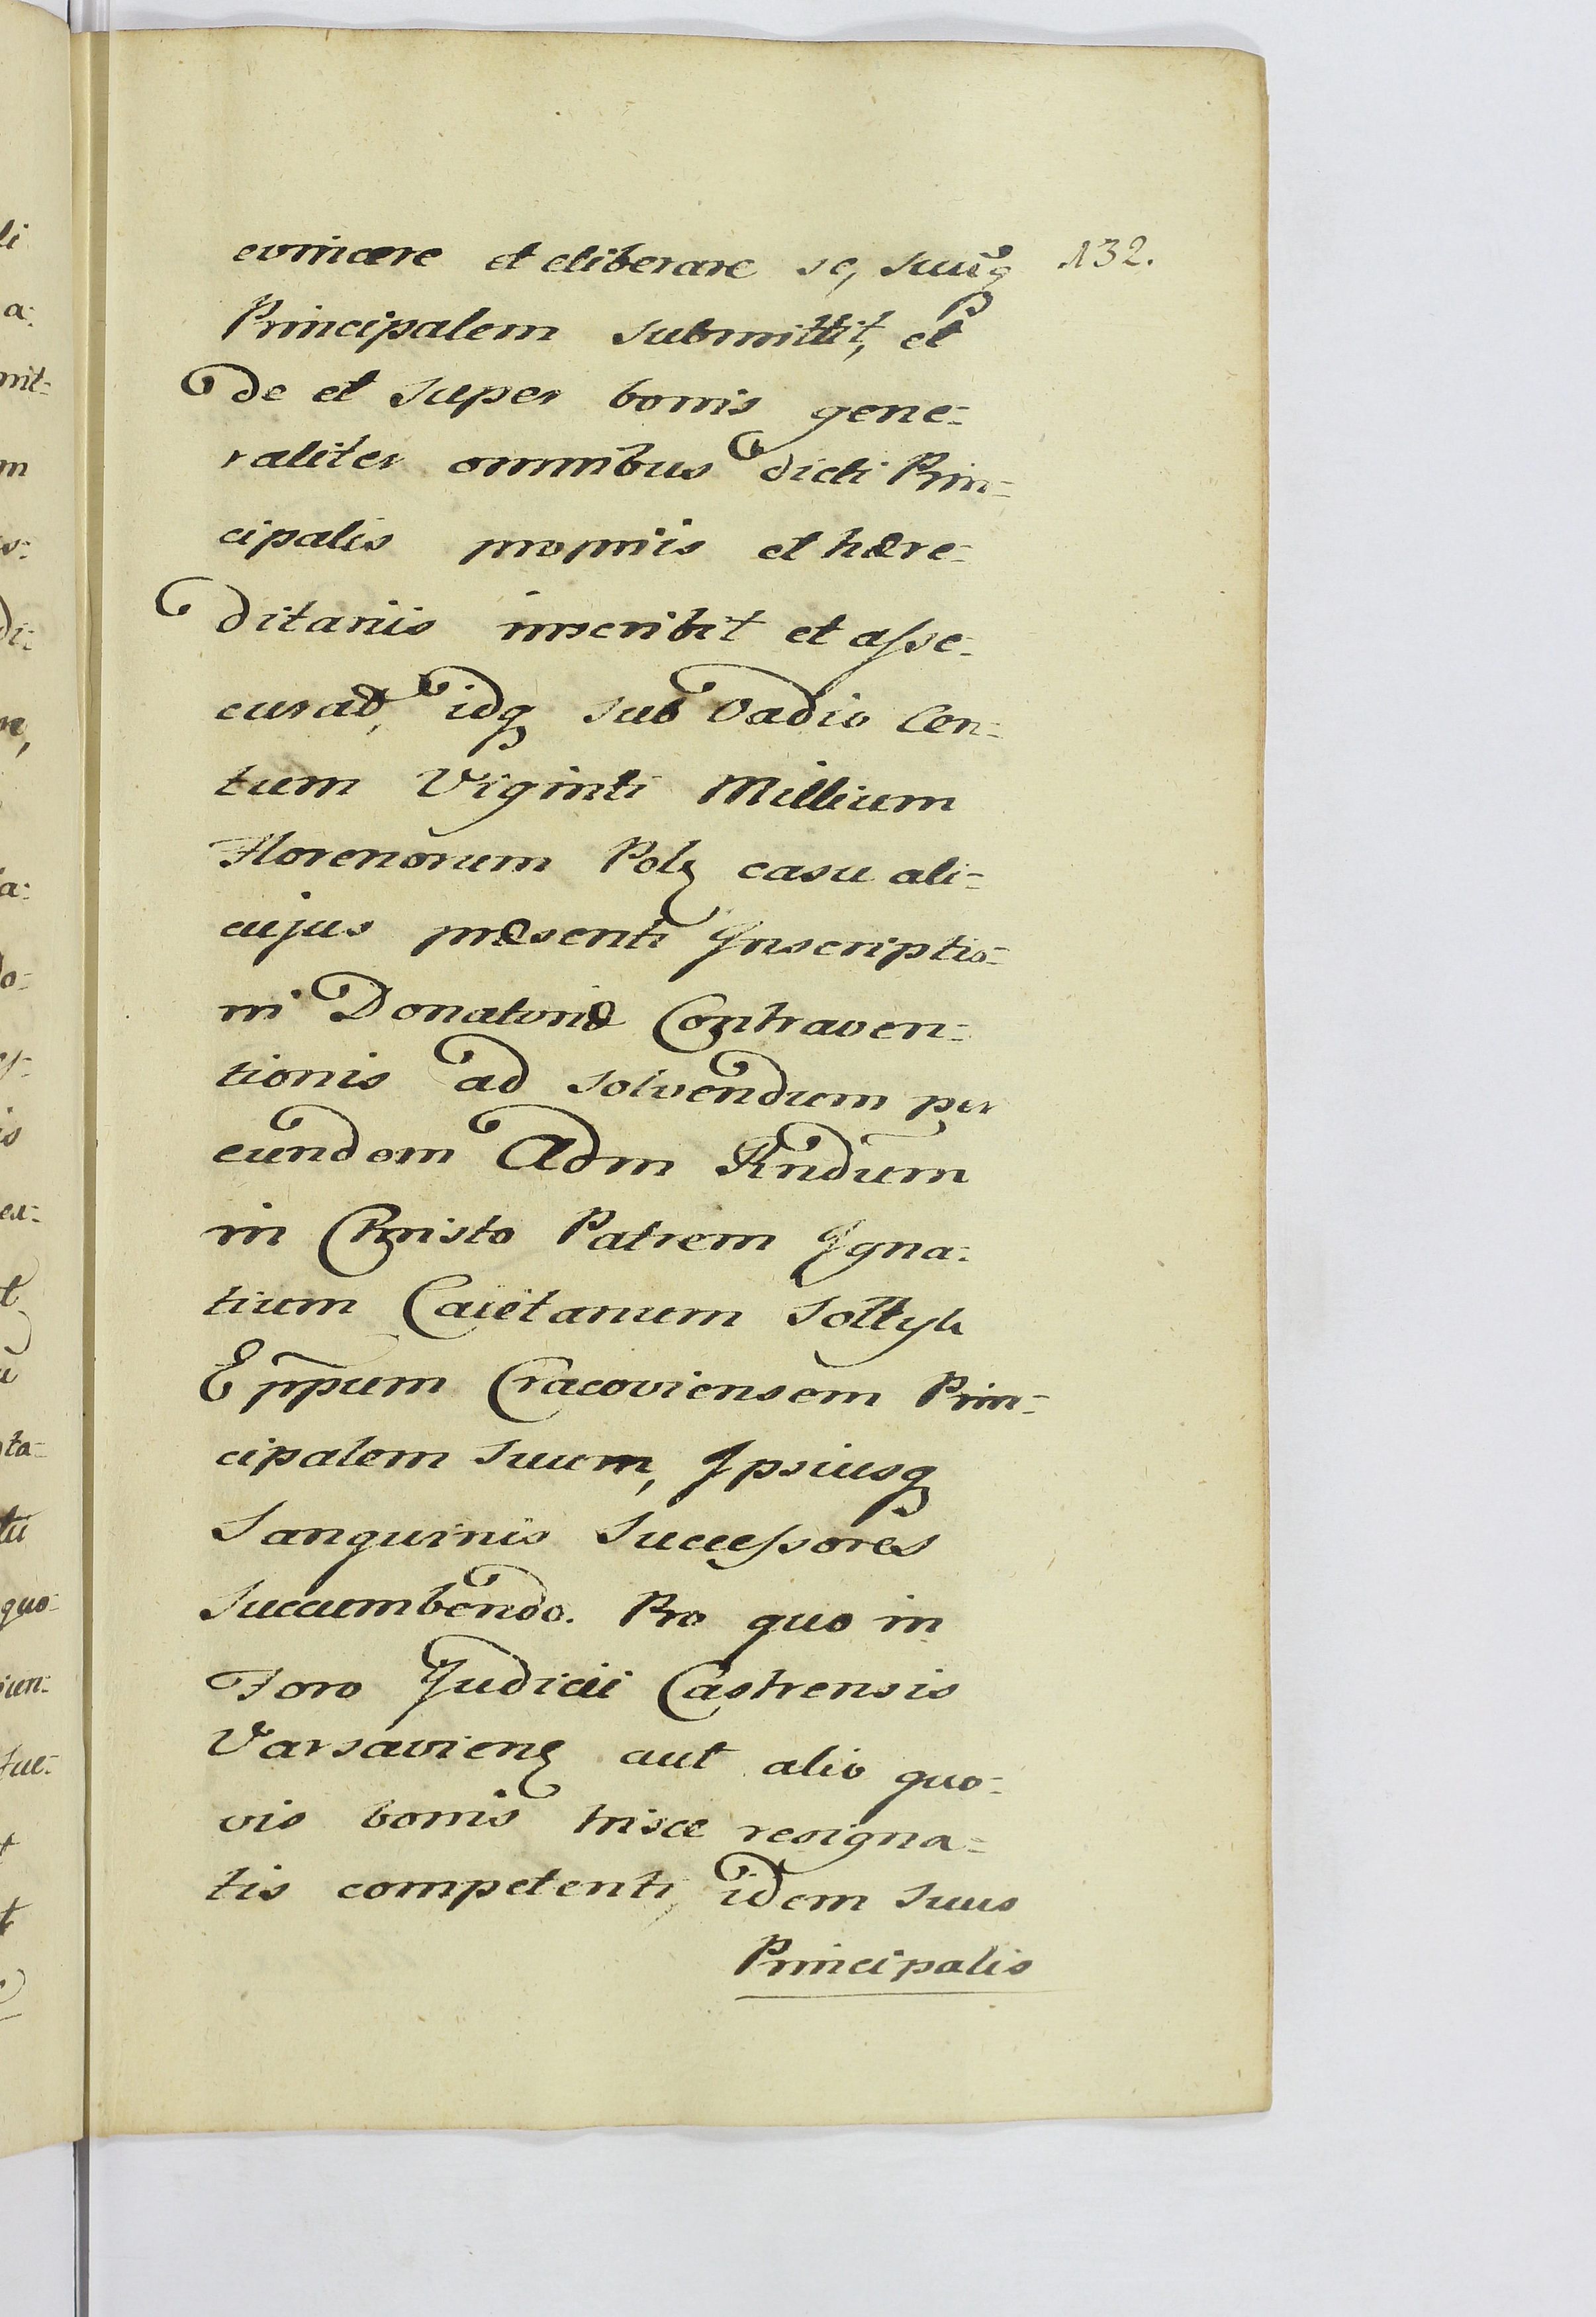 132.
evincere et eliberare se, suūq
Principalem submittit, et
de et super bonis gene-
raliter omnibus dicti Prin-
cipalis proprijs et hære-
ditariis inscribit et asse-
curat, idq sub Vadio Cen-
tum Viginti Millium
Florenorum Polꝫ casu ali-
cujus præsenti Inscriptio-
ni Donatoriæ Contraven-
tionis ad solvendum per
eundem Adm Rndum
in Christo Patrem Igna-
tium Caietanum Sołtyk
Eppum Cracoviensem Prin-
cipalem Suum, Ipsiusq
Sanguinis Successores
Succumbendo. Pro quo in
Foro Judicii Castrensis
Varsavienꝫ aut alio quo-
vis bonis hisce resigna-
tis competenti, idem Suus
Principalis